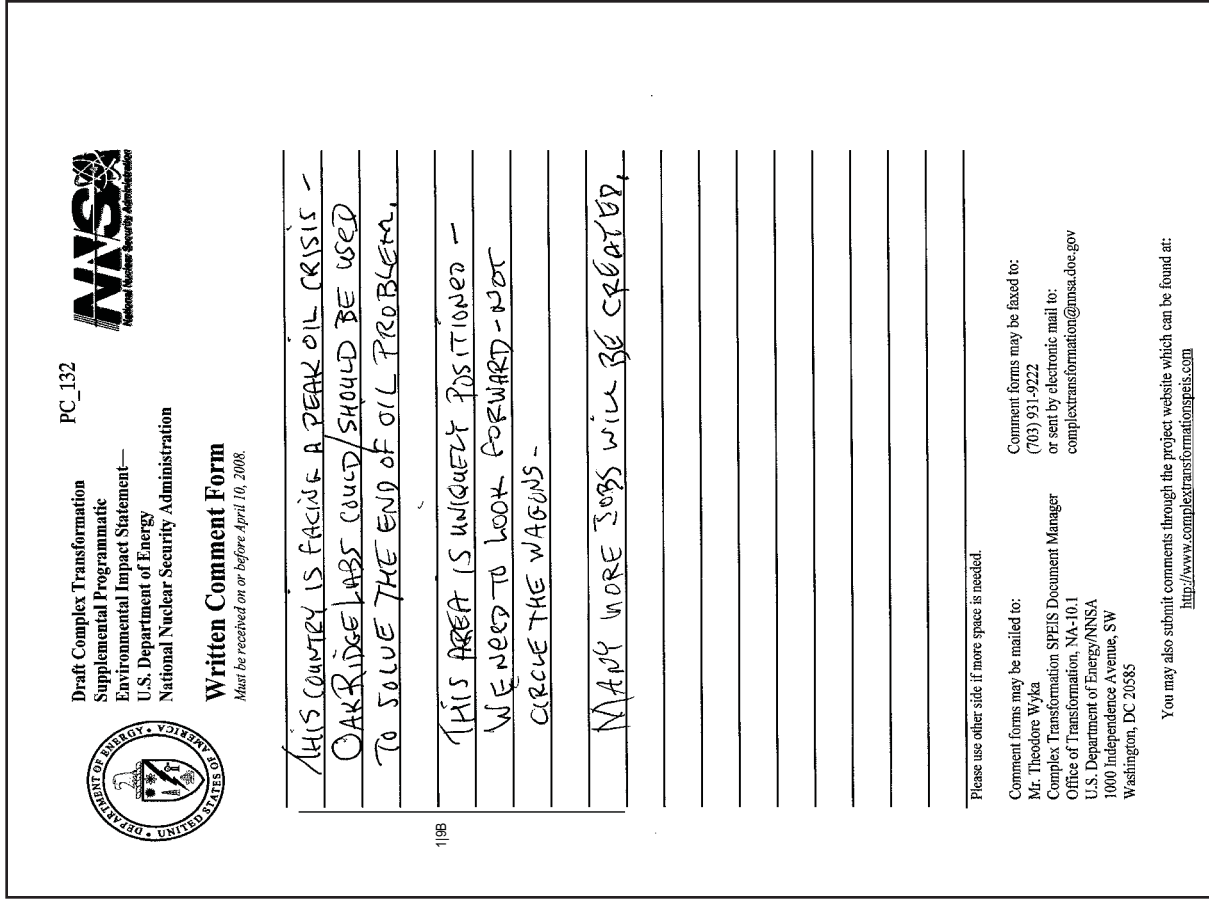 PC_132
Draft Complex Transformation
Supplemental Programmatic
Environmental Impact Statement—
U.S. Department of Energy
National Nuclear Security Administration
DEPARTMENT OF ENERGY
UNITED STATES OF AMERICA
NNSA
National Nuclear Security Administration
Written Comment Form
Must be received on or before April 10, 2008.
THIS COUNTRY IS FACING A PEAK OIL CRISIS -
OAK RIDGE LABS COULD/SHOULD BE USED
TO SOLVE THE END OF OIL PROBLEM.
THIS AREA IS UNIQUELY POSITIONED -
WE NEED TO LOOK FORWARD - NOT
CIRCLE THE WAGONS -
MANY MORE JOBS WILL BE CREATED.
1|9B
Please use other side if more space is needed.
Comment forms may be mailed to:
Mr. Theodore Wyka
Complex Transformation SPEIS Document Manager
Office of Transformation, NA-10.1
U.S. Department of Energy/NNSA
1000 Independence Avenue, SW
Washington, DC 20585
Comment forms may be faxed to:
(703) 931-9222
or sent by electronic mail to:
complextransformation@nnsa.doe.gov
You may also submit comments through the project website which can be found at:
http://www.complextransformationspeis.com